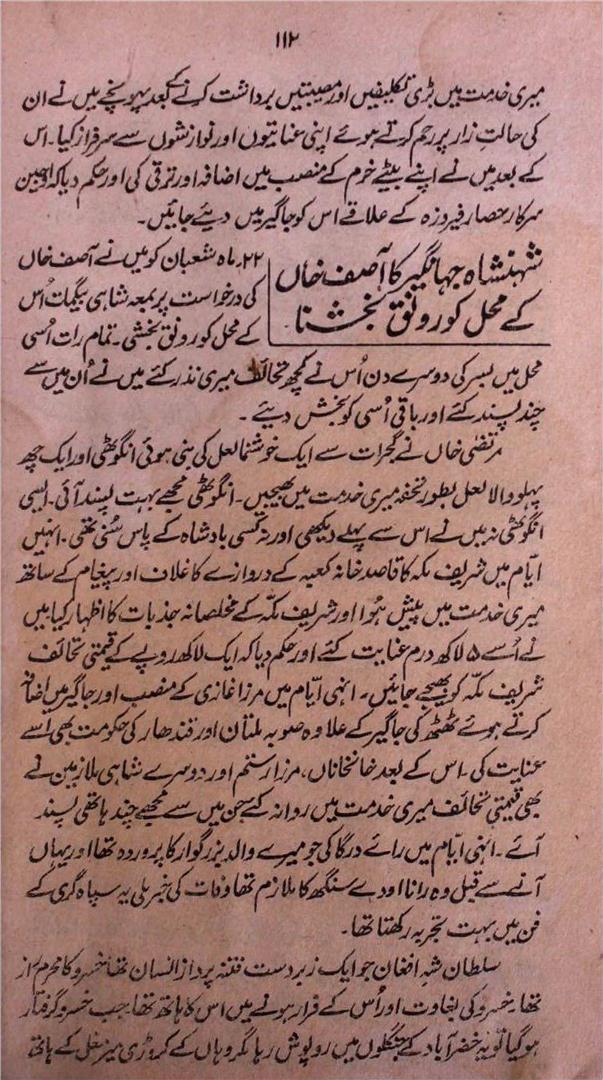 ۱۱۲
میری خدمت میں بڑی تکلیفیں اور مصیبتیں برداشت کرنے کے بعد پہونچے میں نے ان
کی حالتِ زار پر رحم کرتے ہوئے اپنی عنایتوں اور نوازشوں سے سرفراز کیا۔ اس
کے بعد میں نے اپنے بیٹے خرم کے منصب میں اضافہ اور ترقی کی اور حکم دیا کہ اوجین
سرکار حصار فیروزہ کے علاقے اس کو جاگیر میں دیئے جائیں۔
شہنشاہ جہانگیر کا آصف خاں
کے محل کو رونق بخشنا۔
۲۲۔ ماہ شعبان کو میں نے آصف خاں
کی درخواست پر بمعہ شاہی بیگمات اُس
کے محل کو رونق بخشی۔ تمام رات اُسی
محل میں بسر کی دوسرے دن اُس نے کچھ تحائف میری نذر کئے میں نے اُن میں سے
چند پسند کئے اور باقی اُسی کو بخش دیئے۔
مرتضیٰ خاں نے گجرات سے ایک خوشنما لعل کی بنی ہوئی انگوٹھی اور ایک چھ
پہلو والا لعل بطور تحفہ میری خدمت میں بھیجیں۔ انگوٹھی مجھے بہت پسند آئی۔ ایسی
انگوٹھی نہ میں نے اس سے پہلے دیکھی اور نہ کسی بادشاہ کے پاس سُنی تھی۔ انہیں
ایّام میں شریف مکہ کا قاصد خانہ کعبہ کے دروازے کا غلاف اور پیغام کے ساتھ
میری خدمت میں پیش ہُوا اور شریف مکّہ کے مخلصانہ جذبات کا اظہار کیا میں
نے اُسے ۵ لاکھ درم عنایت کئے اور حکم دیا کہ ایک لاکھ روپے کے قیمتی تحائف
شریف مکّہ کو بھیجے جائیں۔ انہی ایّام میں مرزا غازی کے منصب اور جاگیر میں اضافہ
کرتے ہوئے ٹھٹھ کی جاگیر کے علاوہ صوبہ ملتان اور قندھار کی حکومت بھی اُسے
عنایت کی۔ اس کے بعد خانخاناں، مرزا رستم اور دوسرے شاہی ملازمین نے
بھی قیمتی تحائف میری خدمت میں روانہ کئے جن میں سے مجھے چند ہاتھی پسند
آئے۔ انہی ایّام میں رائے درگا کی جو میرے والد بزرگوار کا پروردہ تھا اور یہاں
آنے سے قبل وہ رانا اودے سنگھ کا ملازم تھا وفات کی خبر ملی یہ سپاہ گری کے
فن میں بہت تجربہ رکھتا تھا۔
سلطان شہ افغان جو ایک زبردست فتنہ پرداز انسان تھا خسرو کا محرم راز
تھا۔ خسرو کی بغاوت اور اُس کے فرار ہونے میں اس کا ہاتھ تھا۔ جب خسرو گرفتار
ہو گیا تو یہ خضرآباد کے جنگلوں میں روپوش رہا مگر وہاں کے کروڑی میر مغل کے ہاتھ